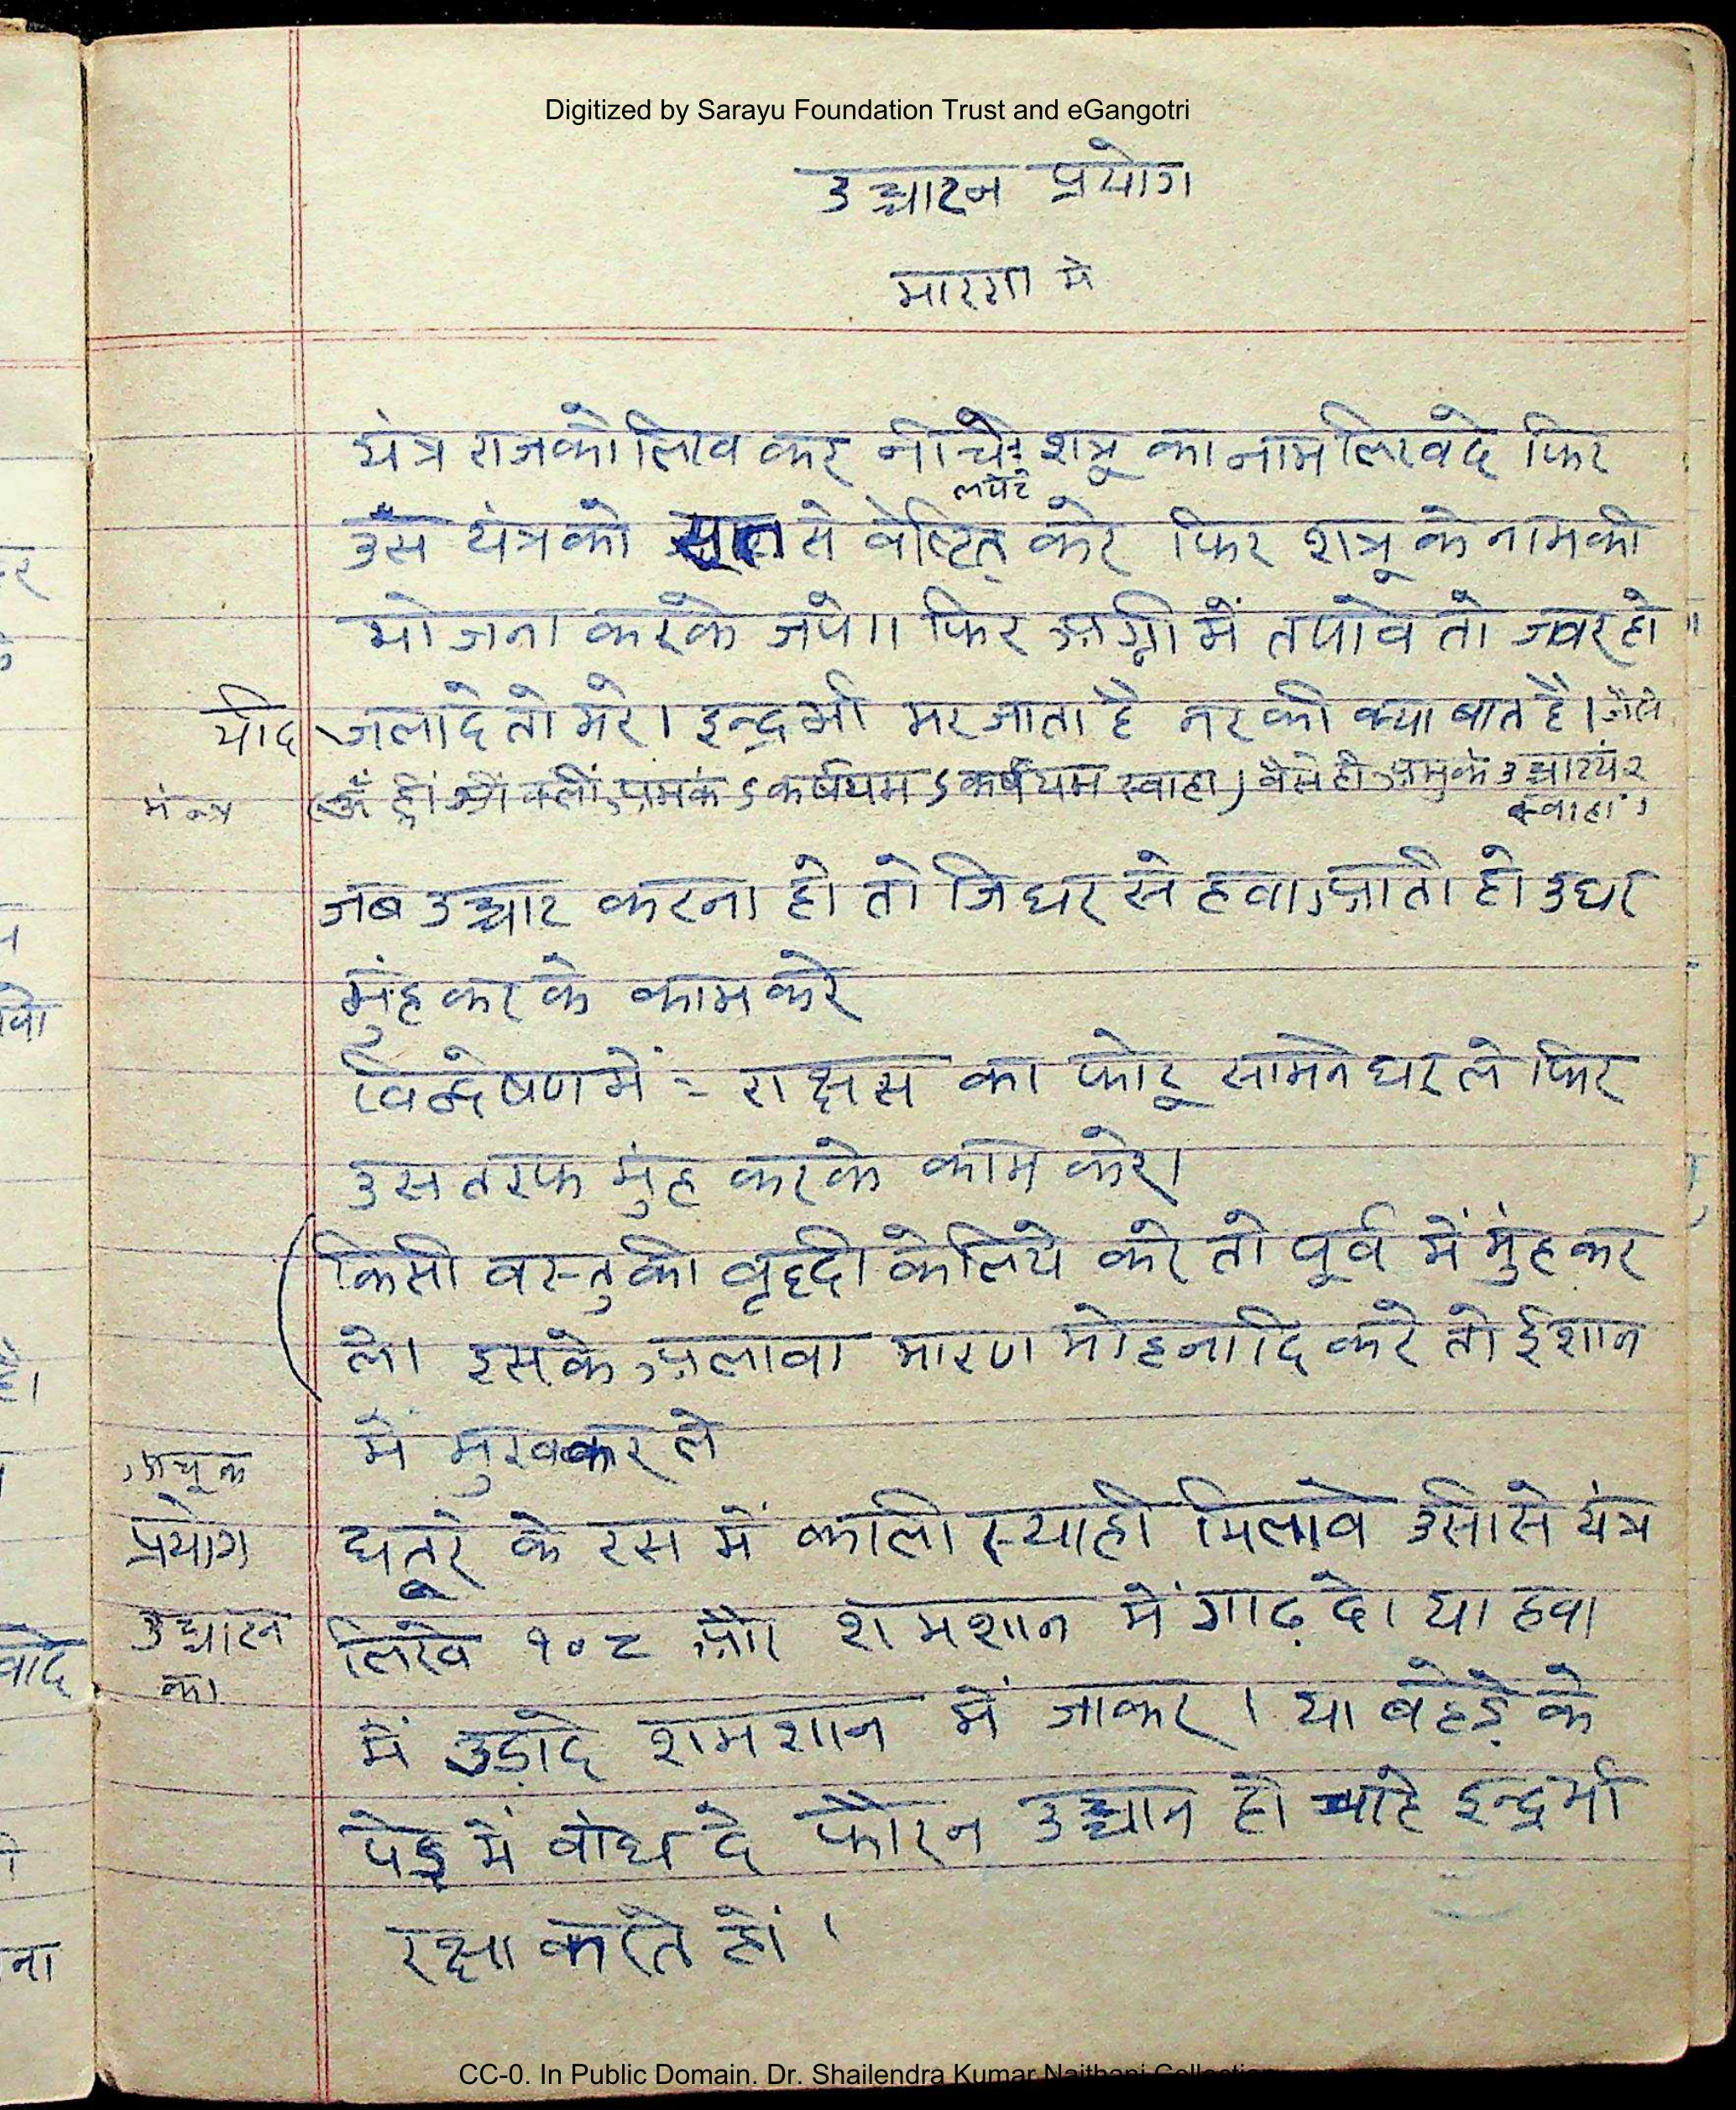 Digitized by Sarayu Foundation Trust and eGangotri
उच्चाटन प्रयोग
मारण मे
यंत्र राजको लिख कर नीचे शत्रू का नाम लिख दे फिर
लपेटे
उस यंत्रको सूत से वेष्टित करे फिर शत्रू के नाम की
योजना करके जपे।। फिर अग्नी में तपावे तो ज्वर हो ॥
यदि जलादे तो मरे। इन्द्र भी मर जाता है नर की क्या बात है। जैसे
मंत्र (ॐ ह्रीं श्रीं क्लीं अमुकं ऽकर्षयम ऽकर्षयम स्वाहा) वैसे ही अमुकं उच्चाटयं २
स्वाहा।
जब उच्चाट करना हो तो जिधर से हवा आती हो उधर
मुंह कर के काम करे
विद्वेषण में = राक्षस का फोटू सामने धर ले फिर
उस तरफ मुंह करके काम करे।
(किसी वस्तु की वृद्दी के लिये करे तो पूर्व में मुंह कर
ले। इसके अलावा मारण मोहनादि करे तो ईशान
में मुख कर ले
अचूक
प्रयोग धतूरे के रस में काली स्याही मिलावे उसी से यंत्र
उच्चाटन लिखे १०८ और शमशान में गाढ़ दे। या हवा
का
में उड़ादे शमशान में जाकर । या बहेड़े के
पेड़ में बांध दे फौरन उच्चान हो चाहे इन्द्र भी
रक्षा करते हों ।
CC-0. In Public Domain. Dr. Shailendra Kumar Naithani Collection